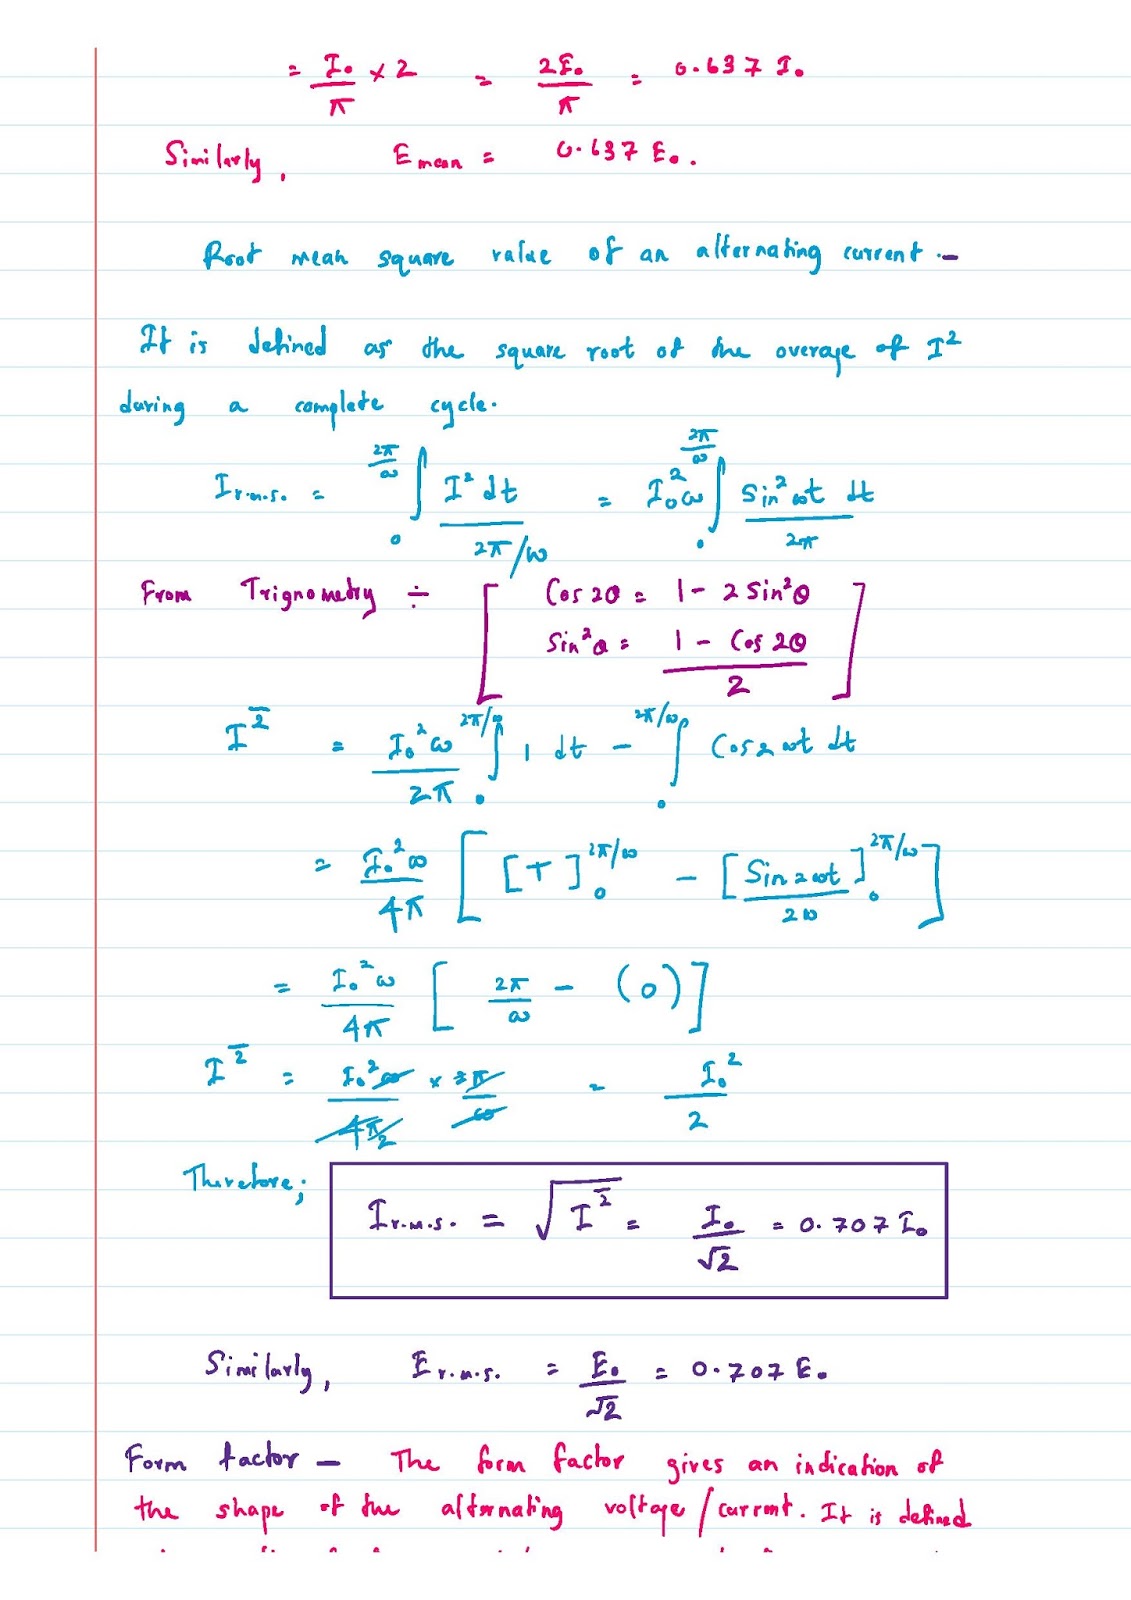 = I₀/π × 2 = 2I₀/π = 0.637 I₀
Similarly, E mean = 0.637 E₀.
Root mean square value of an alternating current .-
It is defined as the square root of the average of I²
during a complete cycle.
I r.m.s. = ₀∫^(2π/ω) I² dt / (2π/ω) = I₀²ω ₀∫^(2π/ω) Sin²ωt dt / 2π
From Trignometry ÷ [ Cos 2θ = 1 - 2 Sin²θ
Sin²θ = (1 - Cos 2θ)/2 ]
I^2̅ = I₀²ω/2π ₀∫^(2π/ω) 1 dt - ₀∫^(2π/ω) Cos 2ωt dt
= I₀²ω/4π [ [T]₀^(2π/ω) - [Sin 2ωt / 2ω]₀^(2π/ω) ]
= I₀²ω/4π [ 2π/ω - (0) ]
I^2̅ = I₀²ω/4π2 × 2π/ω = I₀²/2
Therefore;
I r.m.s. = √I^2̅ = I₀/√2 = 0.707 I₀
Similarly, E r.m.s. = E₀/√2 = 0.707 E₀
Form factor — The form factor gives an indication of
the shape of the alternating voltage / current. It is defined